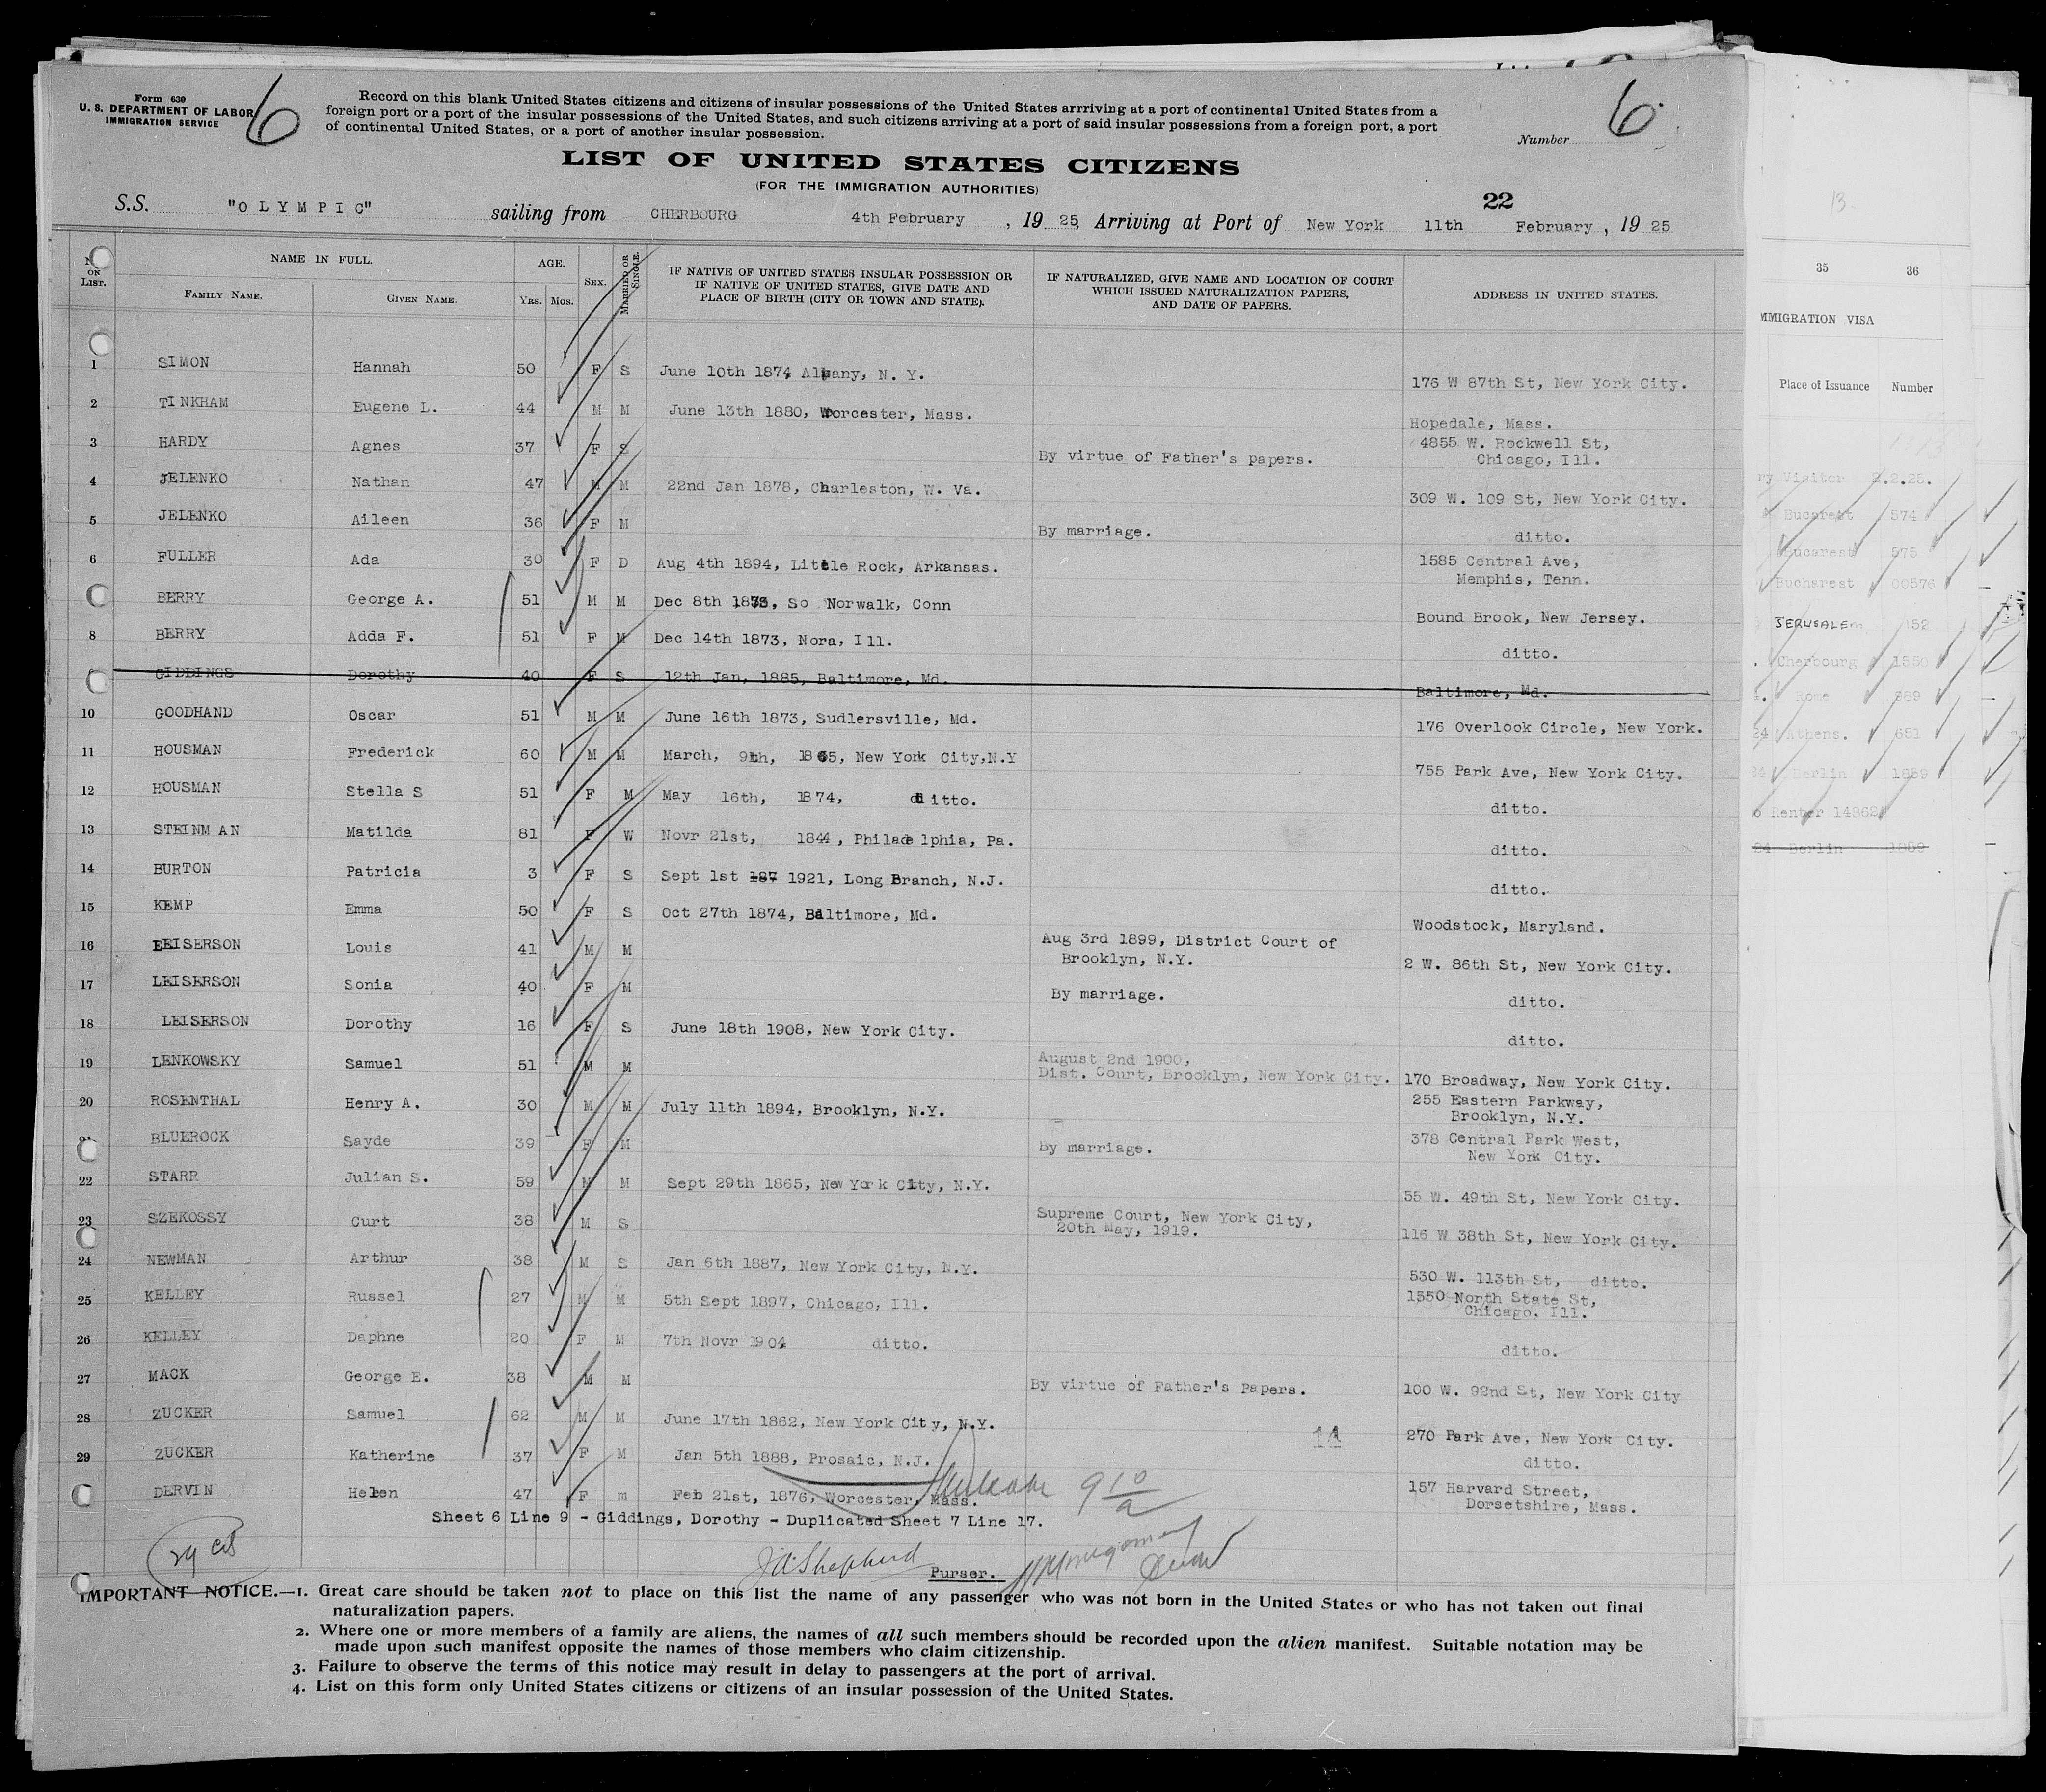 Form 630
U. S. DEPARTMENT OF LABOR
IMMIGRATION SERVICE
6
Record on this blank United States citizens and citizens of insular possessions of the United States arrriving at a port of continental United States from a
foreign port or a port of the insular possessions of the United States, and such citizens arriving at a port of said insular possessions from a foreign port, a port
of continental United States, or a port of another insular possession.
Number 6.
LIST OF UNITED STATES CITIZENS
(FOR THE IMMIGRATION AUTHORITIES)
22
S.S. "OLYMPIC" sailing from CHERBOURG 4th February , 19 25, Arriving at Port of New York 11th February , 19 25
No. ON LIST. NAME IN FULL. AGE. SEX. MARRIED OR SINGLE. IF NATIVE OF UNITED STATES INSULAR POSSESSION OR IF NATIVE OF UNITED STATES, GIVE DATE AND PLACE OF BIRTH (CITY OR TOWN AND STATE). IF NATURALIZED, GIVE NAME AND LOCATION OF COURT WHICH ISSUED NATURALIZATION PAPERS, AND DATE OF PAPERS. ADDRESS IN UNITED STATES.
FAMILY NAME. GIVEN NAME. YRS. MOS.
1 SIMON Hannah 50 F S June 10th 1874, Albany, N. Y. 176 W 87th St, New York City.
2 TINKHAM Eugene L. 44 M M June 13th 1880, Worcester, Mass. Hopedale, Mass.
3 HARDY Agnes 37 F S By virtue of Father's papers. 4855 W. Rockwell St,
Chicago, Ill.
4 JELENKO Nathan 47 M M 22nd Jan 1878, Charleston, W. Va. 309 W. 109 St, New York City.
5 JELENKO Aileen 36 F M By marriage. ditto.
6 FULLER Ada 30 F D Aug 4th 1894, Little Rock, Arkansas. 1585 Central Ave,
Memphis, Tenn.
BERRY George A. 51 M M Dec 8th 1873, So Norwalk, Conn Bound Brook, New Jersey.
8 BERRY Adda F. 51 F M Dec 14th 1873, Nora, Ill. ditto.
GIDDINGS Dorothy 40 F S 12th Jan, 1885, Baltimore, Md. Baltimore, Md.
10 GOODHAND Oscar 51 M M June 16th 1873, Sudlersville, Md. 176 Overlook Circle, New York.
11 HOUSMAN Frederick 60 M M March, 9th, 1865, New York City,N.Y 755 Park Ave, New York City.
12 HOUSMAN Stella S 51 F M May 16th, 1874, ditto. ditto.
13 STEINMAN Matilda 81 F W Novr 21st, 1844, Philadelphia, Pa. ditto.
14 BURTON Patricia 3 F S Sept 1st 187 1921, Long Branch, N.J. ditto.
15 KEMP Emma 50 F S Oct 27th 1874, Baltimore, Md. Woodstock, Maryland.
16 LEISERSON Louis 41 M M Aug 3rd 1899, District Court of
Brooklyn, N.Y. 2 W. 86th St, New York City.
17 LEISERSON Sonia 40 F M By marriage. ditto.
18 LEISERSON Dorothy 16 F S June 18th 1908, New York City. ditto.
19 LENKOWSKY Samuel 51 M M August 2nd 1900,
Dist. Court, Brooklyn, New York City. 170 Broadway, New York City.
20 ROSENTHAL Henry A. 30 M M July 11th 1894, Brooklyn, N.Y. 255 Eastern Parkway,
Brooklyn, N.Y.
21 BLUEROCK Sayde 39 F M By marriage. 378 Central Park West,
New York City.
22 STARR Julian S. 59 M M Sept 29th 1865, New York City, N.Y. 55 W. 49th St, New York City.
23 SZEKOSSY Curt 38 M S Supreme Court, New York City,
20th May, 1919. 116 W 38th St, New York City.
24 NEWMAN Arthur 38 M S Jan 6th 1887, New York City, N.Y. 530 W. 113th St, ditto.
25 KELLEY Russel 27 M M 5th Sept 1897, Chicago, Ill. 1550 North State St,
Chicago, Ill.
26 KELLEY Daphne 20 F M 7th Novr 1904 ditto. ditto.
27 MACK George E. 38 M M By virtue of Father's Papers. 100 W. 92nd St, New York City
28 ZUCKER Samuel 62 M M June 17th 1862, New York City, N.Y. 270 Park Ave, New York City.
14
29 ZUCKER Katherine 37 F M Jan 5th 1888, Prosaic, N.J. ditto.
DERVIN Helen 47 F m Feb 21st, 1876, Worcester, Mass. 157 Harvard Street,
Dorsetshire, Mass.
Sheet 6 Line 9 - Giddings, Dorothy - Duplicated Sheet 7 Line 17.
29 cit
J A Shepherd
Purser.
IMPORTANT NOTICE.—1. Great care should be taken not to place on this list the name of any passenger who was not born in the United States or who has not taken out final
naturalization papers.
2. Where one or more members of a family are aliens, the names of all such members should be recorded upon the alien manifest. Suitable notation may be
made upon such manifest opposite the names of those members who claim citizenship.
3. Failure to observe the terms of this notice may result in delay to passengers at the port of arrival.
4. List on this form only United States citizens or citizens of an insular possession of the United States.
13
35 36
IMMIGRATION VISA
Place of Issuance Number
Visitor 2.2.25.
Bucarest 574
Bucarest 575
Bucharest 00576
JERUSALEM 152
Cherbourg 1550
Rome 989
24 Athens. 651
24 Berlin 1859
24 Berlin 1859